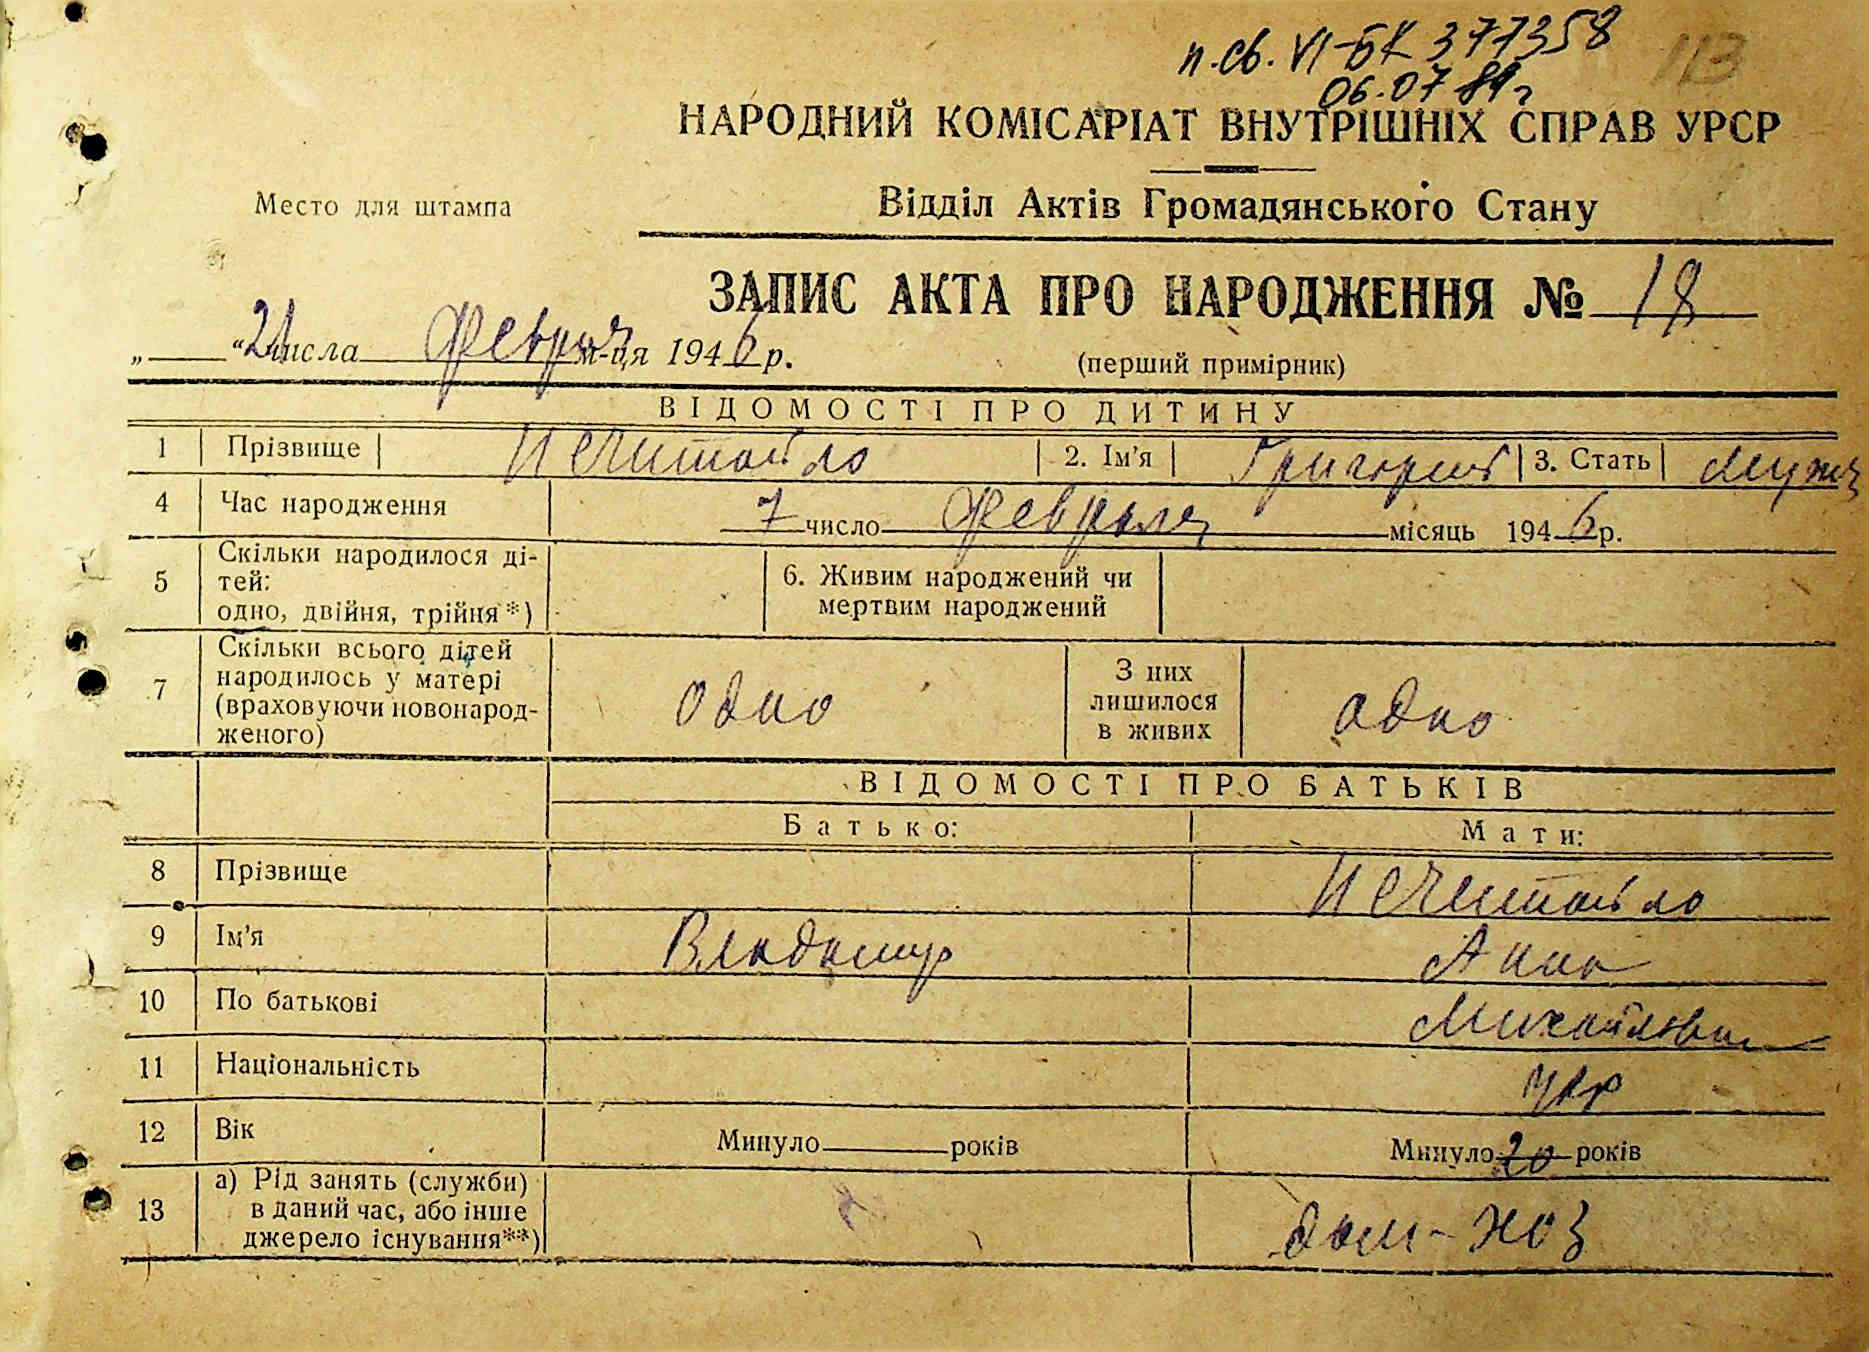 п.св. VI-БК 377358
113
06.07 89г
НАРОДНИЙ КОМІСАРІАТ ВНУТРІШНІХ СПРАВ УРСР
Место для штампа
Відділ Актів Громадянського Стану
ЗАПИС АКТА ПРО НАРОДЖЕННЯ № 18
„ “ 21 числа Февраля м-ця 1946 р.
(перший примірник)
ВІДОМОСТІ ПРО ДИТИНУ
1 Прізвище Нечитайло 2. Ім'я Григорий 3. Стать Мужч
4 Час народження 7 число Февраля місяць 1946 р.
5 Скільки народилося ді-
тей:
одно, двійня, трійня*)
6. Живим народжений чи
мертвим народжений
7 Скільки всього дітей
народилось у матері
(враховуючи новонарод-
женого)
одно
З них
лишилося
в живих
одно
ВІДОМОСТІ ПРО БАТЬКІВ
Батько: Мати:
8 Прізвище Нечитайло
9 Ім'я Владимир Анна
10 По батькові Михайловна
11 Національність укр
12 Вік Минуло років Минуло 20 років
13 а) Рід занять (служби)
в даний час, або інше
джерело існування**)
дом-хоз